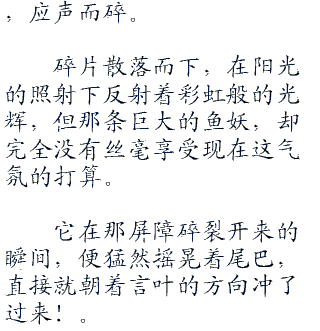 ，应声而碎。
碎片散落而下，在阳光
的照射下反射着彩虹般的光
辉，但那条巨大的鱼妖，却
完全没有丝毫享受现在这气
氛的打算。
它在那屏障碎裂开来的
瞬间，便猛然摇晃着尾巴，
直接就朝着言叶的方向冲了
过来！。